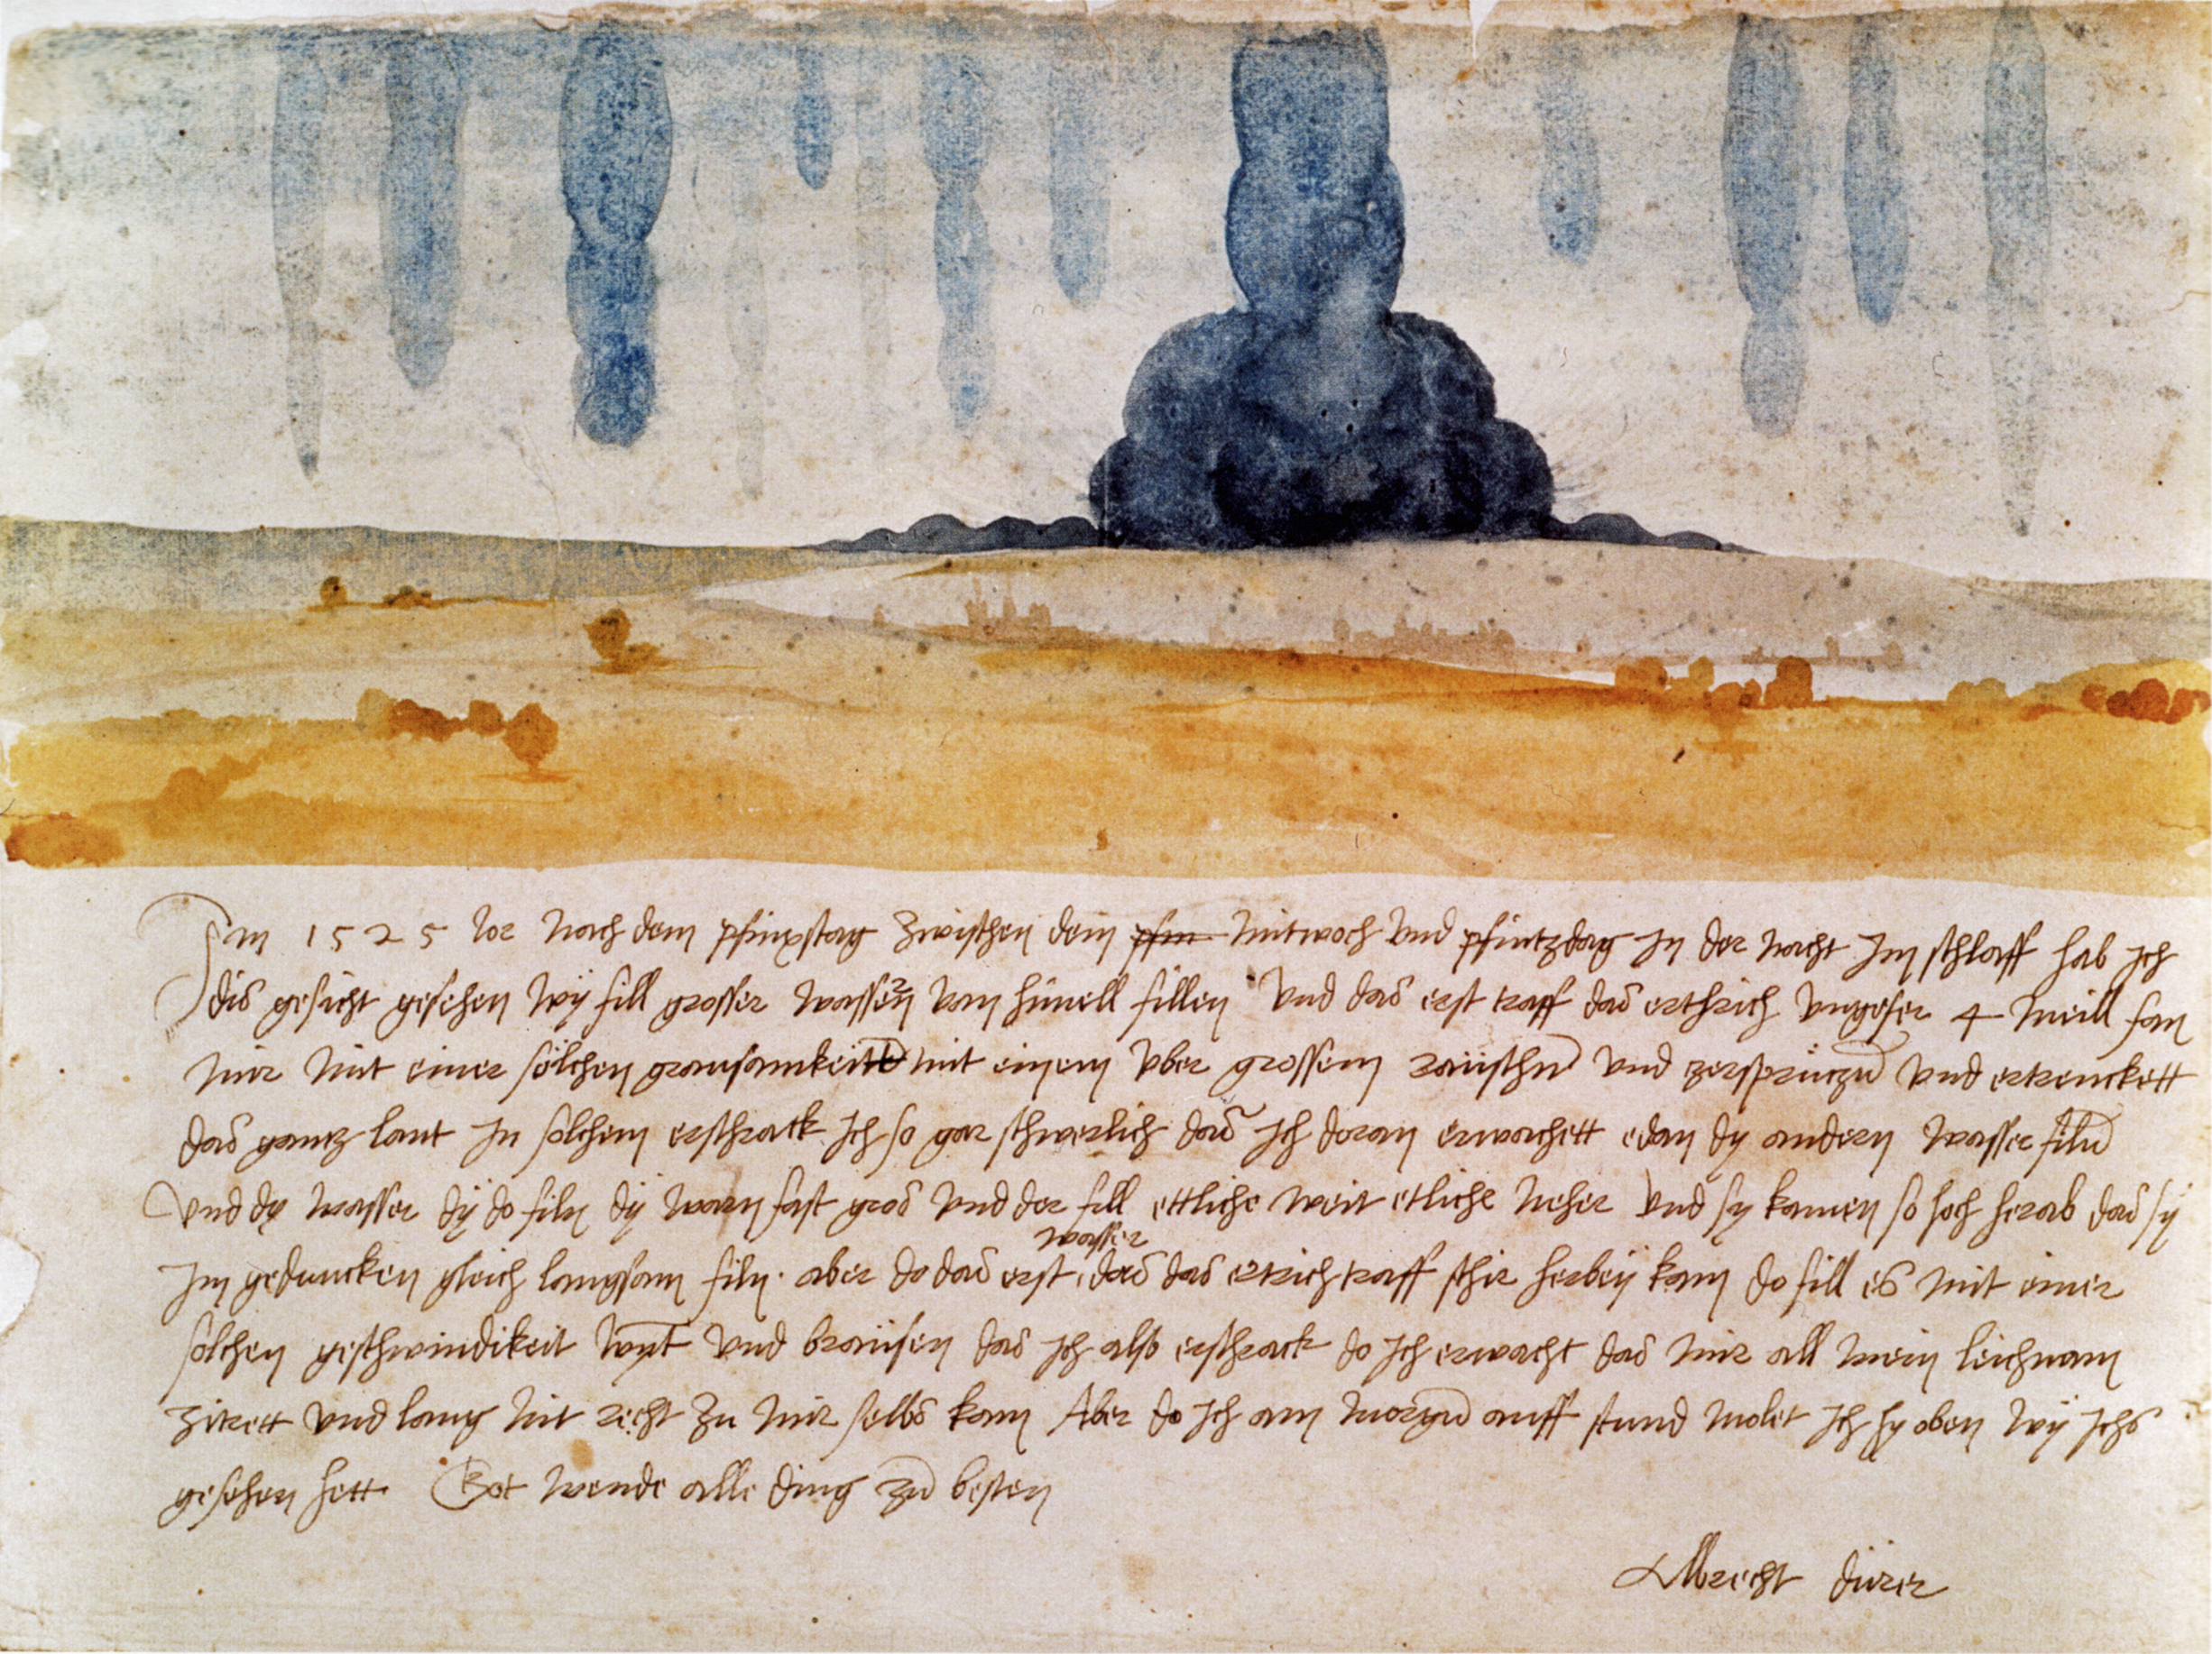 Im 1525 Jor nach dem pfinxstag zwischen dem pfin mitwoch und pfintzdag in der nacht Im schlaff hab ich
dis gesicht gesehen wÿ fill grosser wassern vom himell fillen Und das erst traff das erthrich ungefer 4 meill fan
mir mit einer sölchen grausamkeitt mit einem uber grossem raüschn und zersprützn und ertrenckett
das gantz lant In solchem erschrack ich so gar schwerlich das ich doran erwachett edan dy andern wasser filn
Und dy wasser dÿ do filn dÿ warn fast gros und der fill ettliche weit etliche neher und sy kamen so hoch herab das sÿ
im geduncken gleich langsam filn. aber do das erst
wasser
das das ertrich traff schir herbeÿ kam do fill es mit einer
sölchen geschwindikeit wynt und braüsen das ich also erschrack do ich erwacht das mir all mein leichnam
zitrett und lang nit recht zu mir selbs kam Aber do ich am morgn auff stund molet ich hy oben wÿ ichs
gesehen hett. Got wende alle ding zu besten
Albrecht dürer